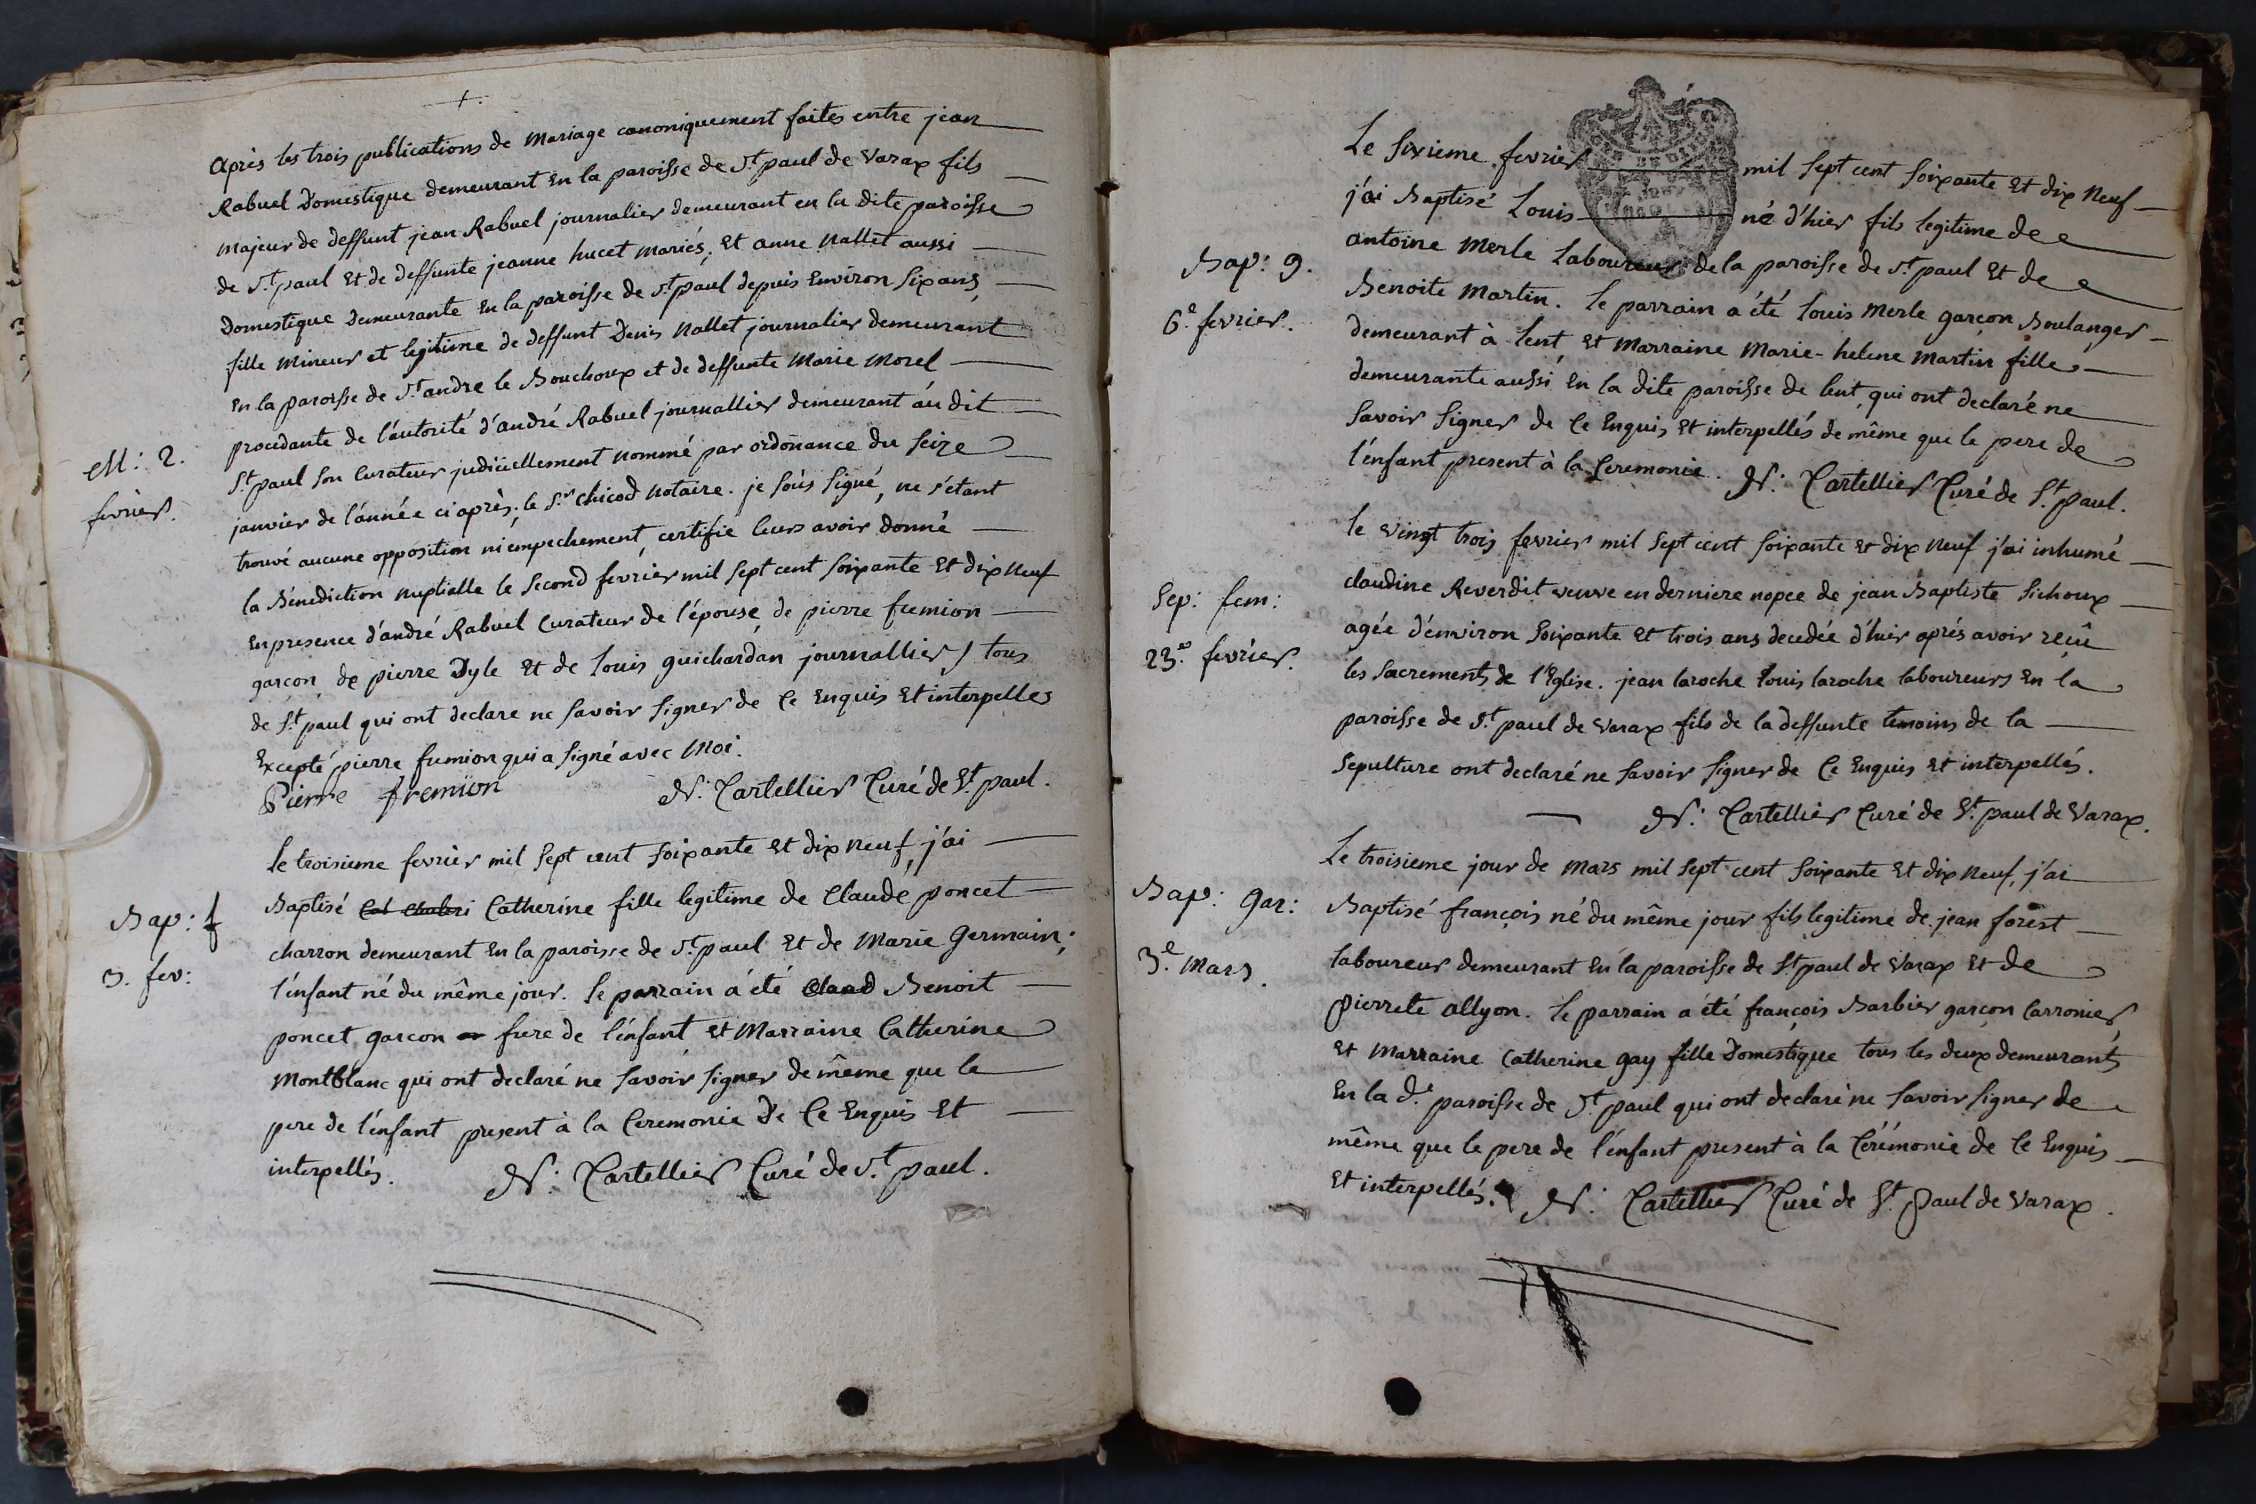 Après les trois publications de Mariage canoniquement faites entre jean
Rabuel Domestique demeurant En la paroisse de St. paul de Varax fils
majeur de deffunt jean Rabuel journalier demeurant en la dite paroisse
de St. paul Et de deffunte jeanne hucet Mariés; Et anne Nallet aussi
Domestique Demeurante En la paroisse de St. paul depuis Environ Six ans,
fille Mineur et legitime de deffunt Denis Nallet journalier demeurant
En la paroisse de St. andre le Bouchoux et de deffunte Marie Morel
procedante de l'autorité d'andré Rabuel journallier demeurant audit
St. paul Son Curateur judiciellement nommé par ordonance du Seize
janvier de l'année ci après, le Sr. chicod Notaire. je Soùs Signé, ne s'etant
trouvé aucune opposition ni empechement certifie leurs avoir donné
la Bénediction nuptialle le Second fevrier mil Sept cent Soixante Et dix Neuf
En presence d'andré Rabuel Curateur de l'épouse, de pierre fremion
garçon, de pierre Dyle Et de Louis guichardan journallier, tous
de St. paul qui ont declare ne Savoir Signer de Ce Enquis Et interpelles
Excepté pierre fremion qui a Signé avec Moi.
Pierre fremion N. Cartellier Curé de St. paul.
M: 2.
fevrier.
le troisieme fevrier mil Sept cent Soixante Et dix neuf, j'ai
Baptisé Catherine fille legitime de Claude poncet
charron demeurant En la paroisse de St. paul Et de Marie Germain;
l'enfant né du même jour. le parrain a été Benoit
poncet garcon frere de l'enfant Et Marraine Catherine
Montblanc qui ont declaré ne Savoir Signer de même que le
pere de l'enfant present à la Ceremonie De Ce Enquis Et
interpellés. N. Cartellier Curé de St. paul.
Bap: f
3. fev:
Le Sixieme fevrier mil Sept cent Soixante Et dix Neuf
j'ai Baptisé Louis né d'hier fils legitime de
antoine Merle Laboureur de la paroisse de St. paul Et de
Benoite Martin. le parrain a été Louis Merle garçon Boulanger
demeurant à lent Et Marraine Marie-helene Martin fille
demeurante aussi En la dite paroisse de lent, qui ont declaré ne
Savoir Signer de Ce Enquis Et interpellés de même que le pere de
l'enfant present à la Ceremonie. N. Cartellier Curé de St. paul.
Bap: g.
6e. fevrier.
le vingt trois fevrier mil Sept cent Soixante Et dix Neuf j'ai inhumé
claudine Reverdit veuve en derniere nopce de jean Baptiste Sichoux
agée d'environ Soixante Et trois ans decedée d'hier après avoir reçû
les Sacrements de l'Eglise. jean laroche Louis laroche laboureurs En la
paroisse de St. paul de varax fils de la deffunte temoins de la
Sepulture ont declaré ne Savoir Signer de Ce Enquis Et interpellés.
N. Cartellier Curé de St. paul de Varax.
Sep: fem:
23e. fevrier.
Le troisieme jour de Mars mil Sept cent Soixante Et dix Neuf, j'ai
Baptisé françois né du même jour fils legitime de jean forest
laboureur demeurant En la paroisse de St. paul de Varax Et de
Pierrete allyon. le parrain a été françois Barbier garçon Carronier,
Et Marraine Catherine gay fille Domestique tous les deux demeurants
En la de. paroisse de St. paul qui ont declaré ne Savoir Signer de
même que le pere de l'enfant present à la Cérémonie de Ce Enquis
Et interpellés. N. Cartellier Curé de St. Paul de Varax.
Bap: gar:
3e. Mars.